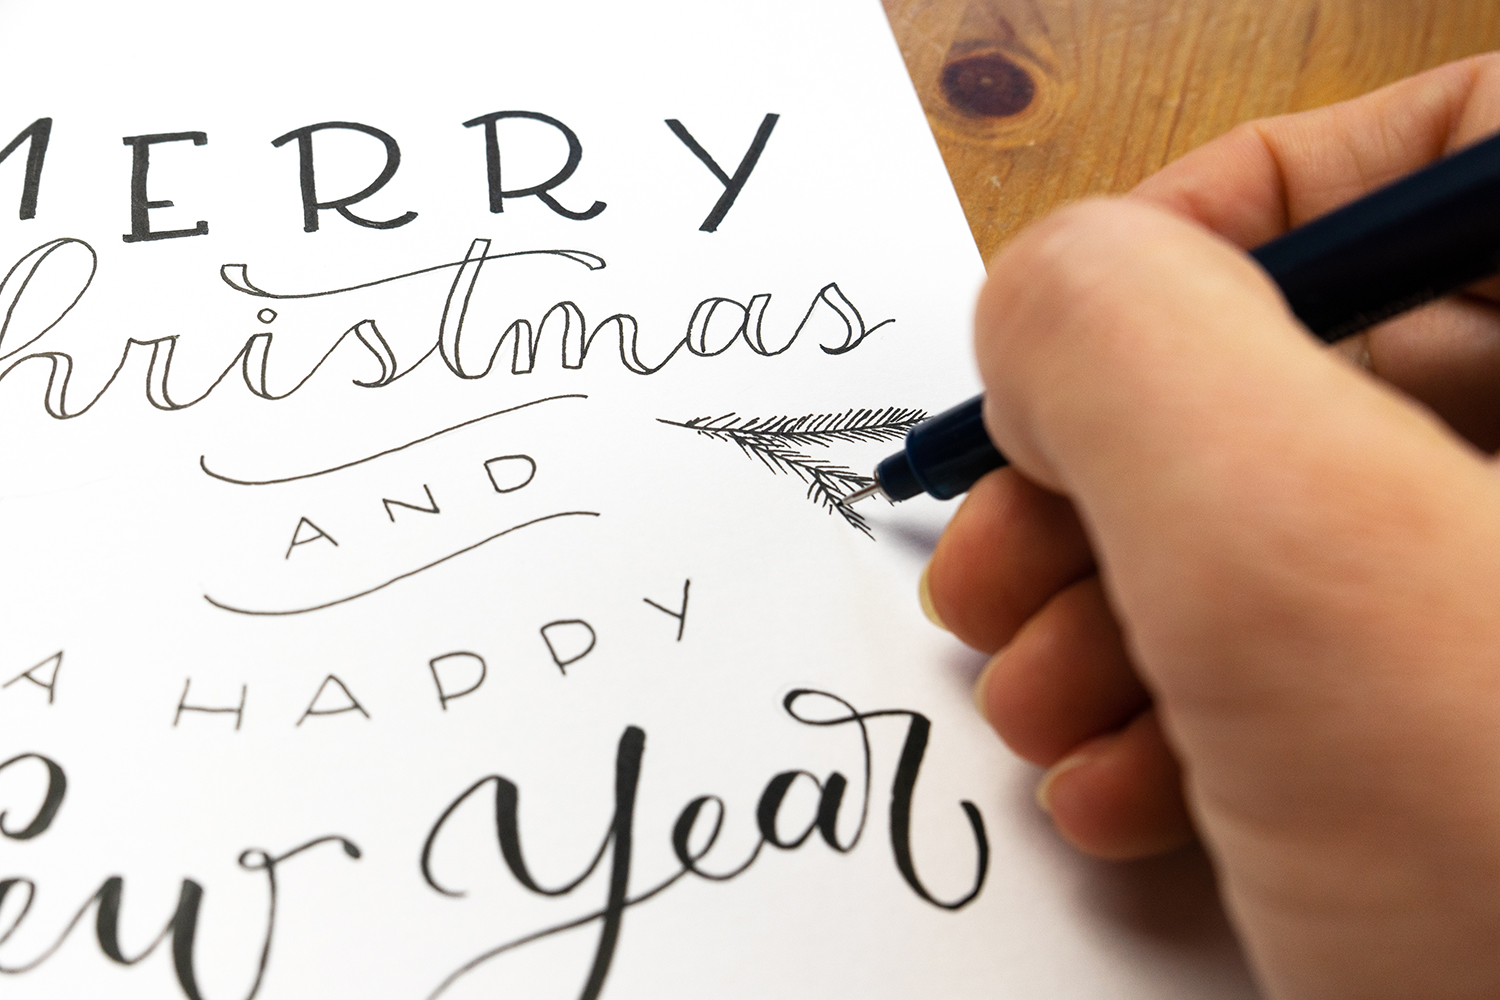 MERRY
Christmas
AND
A HAPPY
New Year